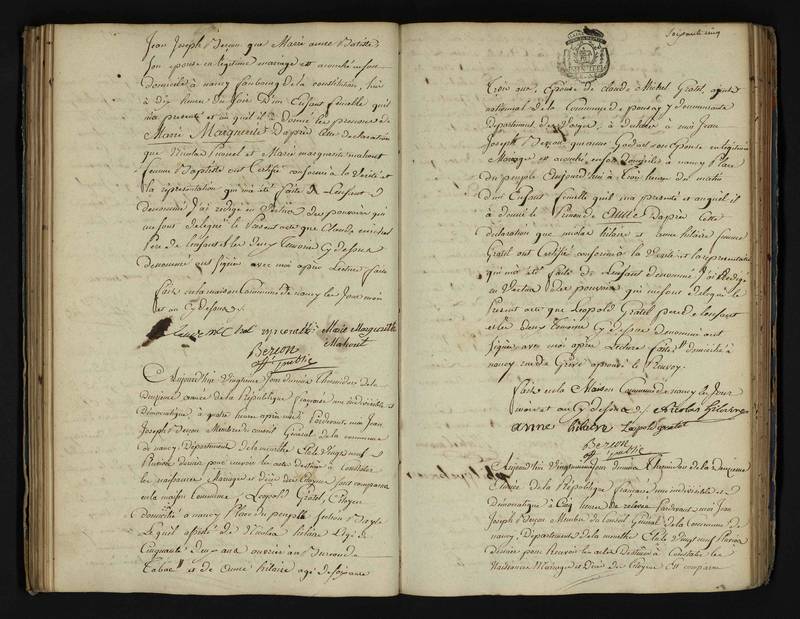 Jean Joseph Berçon que Marie anne Batiste
son epouse en legitime mariage est acouchée enson
domicile à nancy faubourg de la constitution, hier
à dix heures du soir D'un Enfant femelle quil
ma presenté et au quel il à donné les prenoms de
Marie Marguerite D'aprés cette declaration
que Nicolas et Marie marguerite mahout
femme Baptiste ont Certifié conforme à la Verité et
la représentation qui ma été faite de Lenfant
denommé J'ai redigé en Vertu des pouvoirs qui
me sont delegué le Present acte que Claude michel
Pere de lenfant et les deux temoins Cy dessus
denommé ont signé avec moi aprés Lecture faite
fait en la maison Commune de nancy les Jour mois
et an Cy dessus.
Marie Marguerite
Mahout
Berçon
off public
Aujourd'huy Vingtieme Jour du mois Thermidor de la
deuxieme année de la République française une indivisible et
Démocratique, à quatre heures aprés midi Pardevant moi Jean
Joseph Berçon Membre du conseil Général de la commune
de nancy, Département de la meurthe Elu le Vingt neuf
Pluviose dernier pour recevoir les actes destinés à Constater
les naissances Mariages et Décès des Citoyens sont comparus
en la maison Commune, Leopold Gratel, Citoyen
domicilié à nancy Place du peuple section
Lequel assisté de Nicolas hilaire Agé de
Cinquante deux ans ouvrier au
Tabac et de anne hilaire agé de soixante
soixante cinq
Trois ans, épouse de claude Michel Gratel, agent
national de la Commune de
Département des Vosges, à déclaré à moi Jean
Joseph Berçon que anne son epouse en legitime
Mariage est acouchée en son Domicile à nancy Place
du peuple aujourd'hui à trois heures du matin
d'un Enfant femelle quil ma presenté et auquel il
à donné le Prenom de D'aprés Cette
déclaration que nicolas hilaire et anne hilaire femme
Gratel ont Certifié conforme à la Verité et la representation
qui ma été faite de Lenfant denommé J'ai Redigé
en Vertu des pouvoirs qui me sont delegué le
Present acte que Leopold Gratel pere de lenfant
et les deux temoins Cy dessus denommé ont
signé avec moi aprés Lecture faite domicilié à
nancy rue de Greve aprouvé le Renvoy.
fait en la Maison Commune de nancy les Jour
mois et an Cy dessus Nicolas hilaire
anne hilaire Leopold gratel
Berçon
off public
Aujourd'huy Vingt Jour du mois Thermidor de la Deuxieme
Année de la République française une indivisible et
démocratique à Cinq heures de relevée Pardevant moi Jean
Joseph Berçon Membre du Conseil General de la Commune de
nancy, Département de la meurthe Elu le Vingt neuf Pluviose
dernier pour Recevoir les actes destinés à Constater les
Naissances Mariages et Décès des Citoyens Est comparu